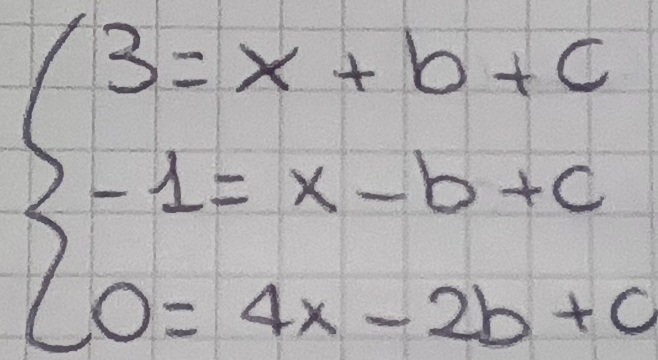 3 = x + b + c
-1 = x - b + c
0 = 4x - 2b + c